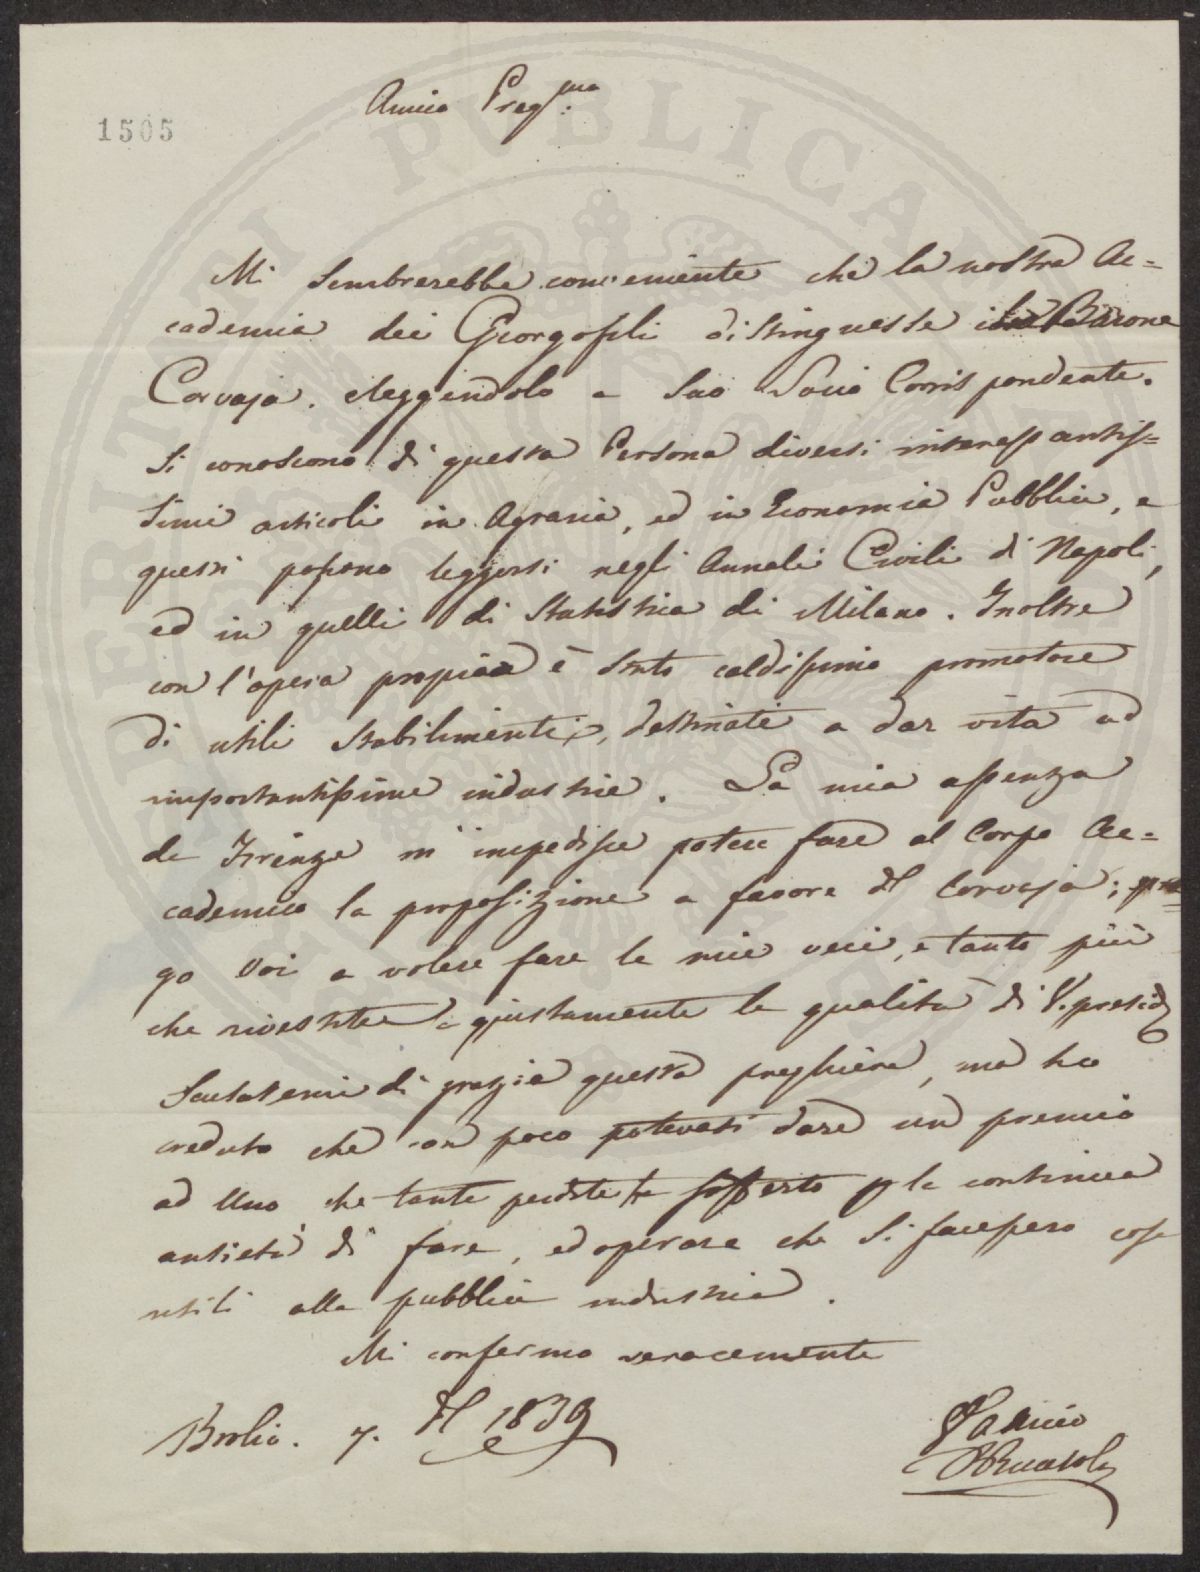 Amico Preg.mo
1505
Mi sembrerebbe conveniente che la nostra Ac=
cademia dei Georgofili distinguesse il Barone
Corvaja, eleggendolo a suo Socio Corrispondente.
Si conoscono di questa Persona diversi interessantis=
simi articoli in Agraria, ed in Economia Pubblica, e
questi possono leggersi negli Annali Civili di Napoli,
ed in quelli di Statistica di Milano. Inoltre
con l'opera propria è stato caldissimo promotore
di utili stabilimenti, destinati a dar vita ad
importantissime industrie. La mia assenza
da Firenze m'impedisce potere fare al Corpo Ac=
cademico la proposizione a favore del Corvaja; pre=
go Voi a volere fare le mie veci, e tanto più
che rivestite giustamente la qualità di V. presid
Scusatemi di grazia questa preghiera, ma ho
creduto che con poco potevasi dare un premio
ad Uno che tante perdite ha sofferto p la continua
ansietà di fare, ed operare che si facessero cose
utili alla pubblica industria.
Mi confermo veracemente
Brolio. 7. del 1839
L'amico
BRicasoli
PUBLICAE